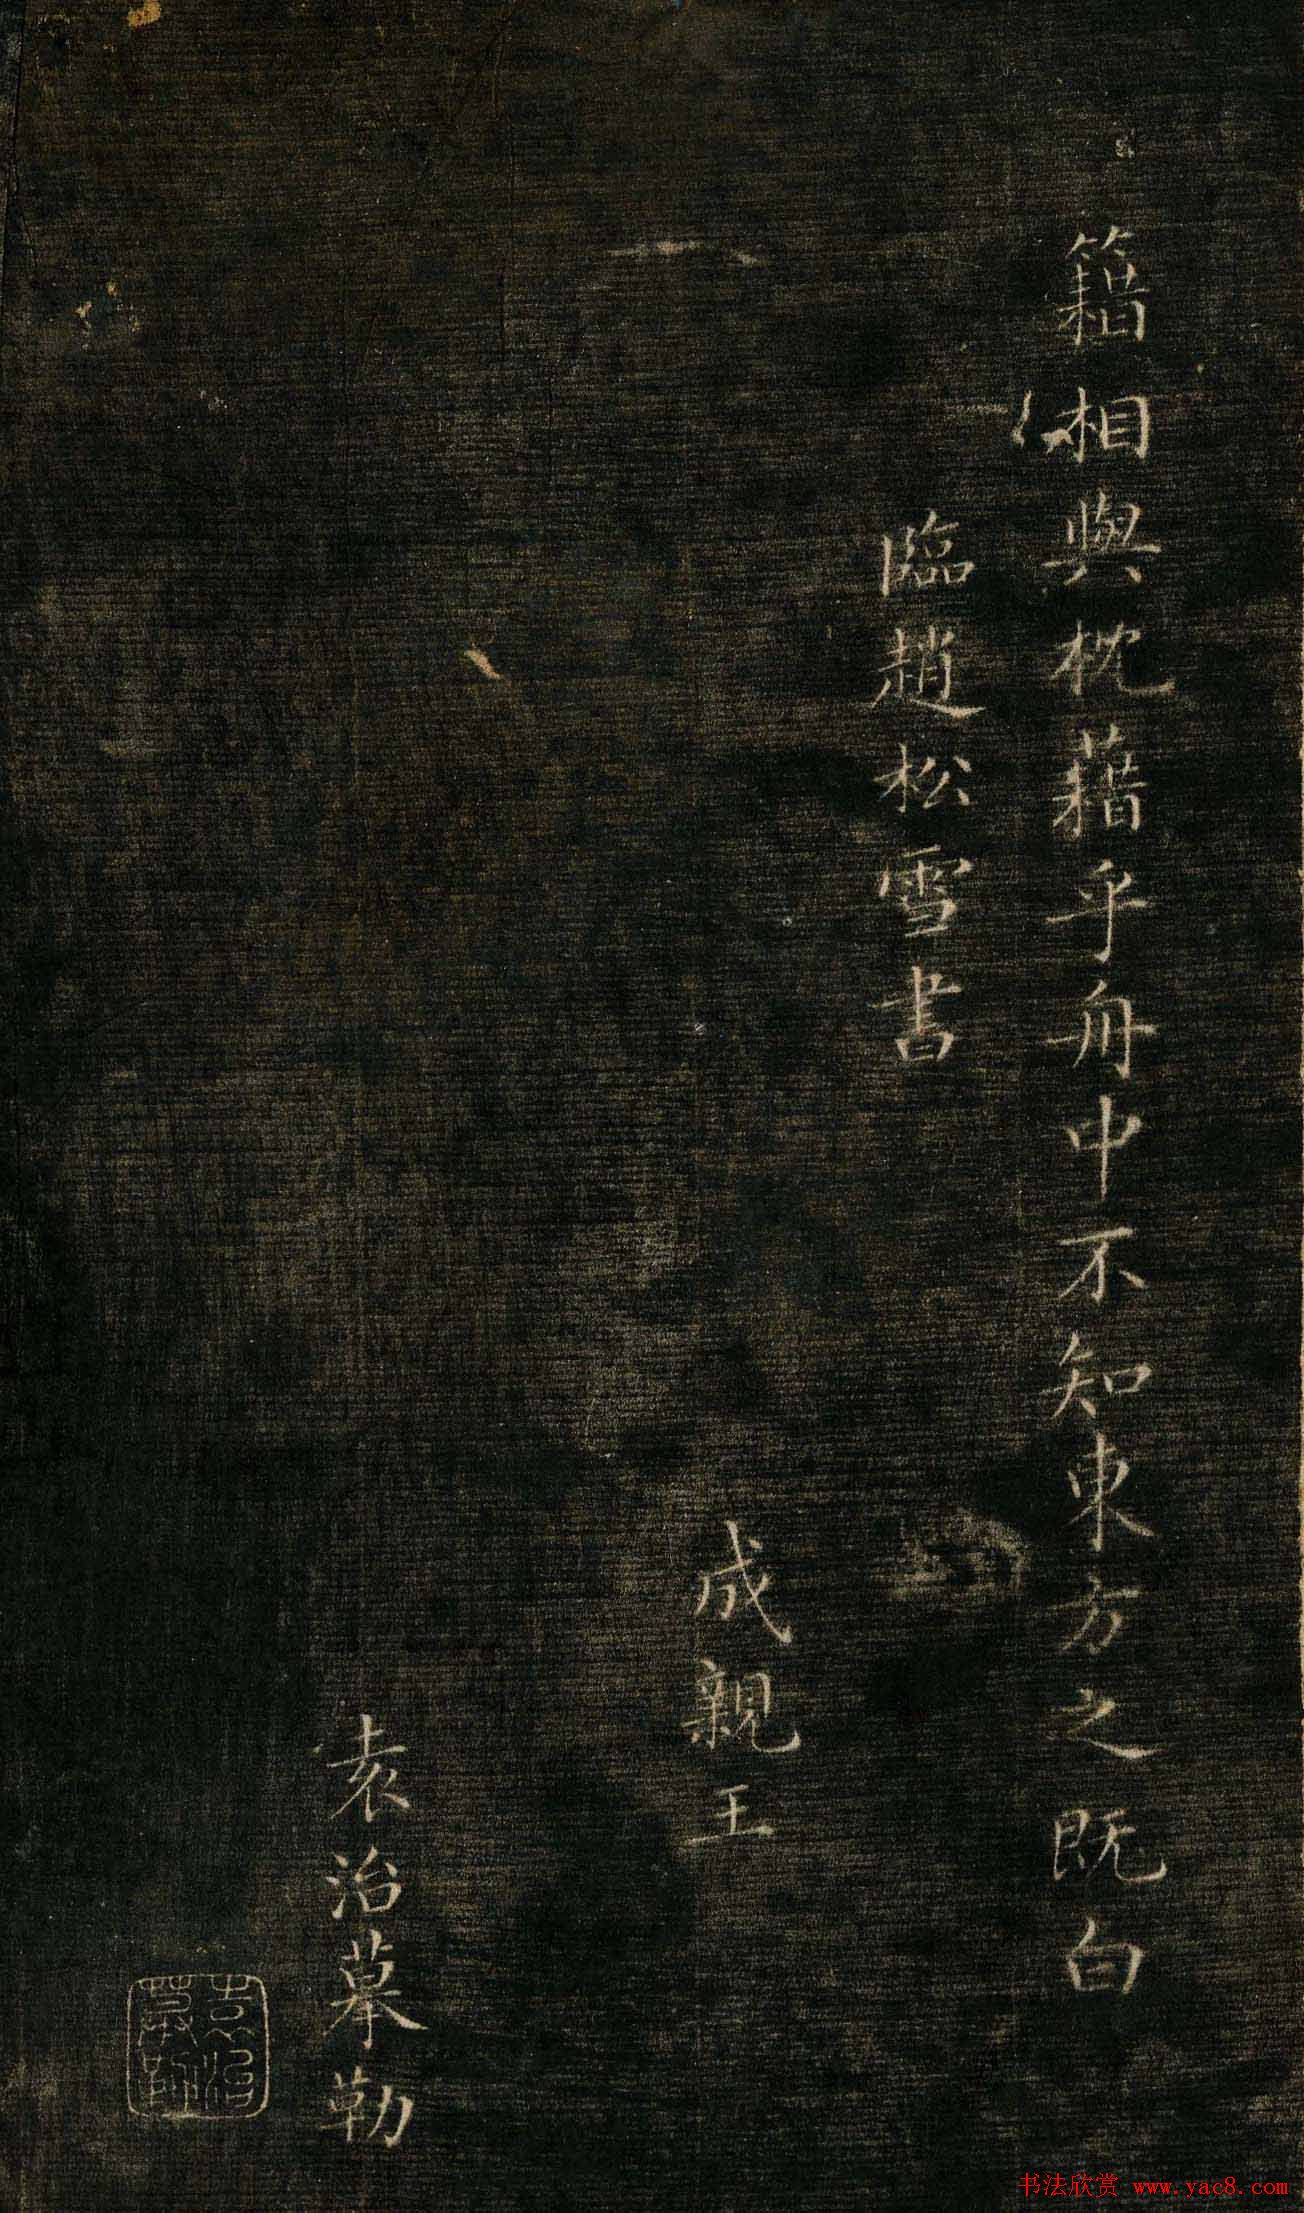 籍相與枕藉乎舟中不知東方之既白
臨趙松雪書
成親王
袁治摹勒
书法欣赏 www.yac8.com